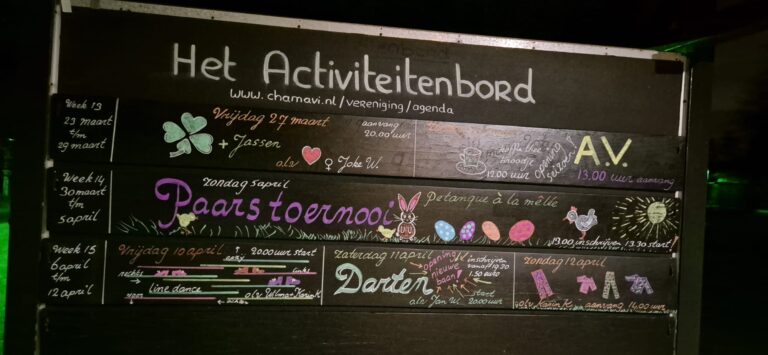 Het Activiteitenbord
www.chamavi.nl/vereniging/agenda
Week 13
23 maart
t/m
29 maart
Vrijdag 27 maart
aanvang
20.00 uur
+ Jassen
olv ♀ Joke W.
koffie thee
broodje
12.00 uur
opening
seizoen!
A.V.
13.00 uur aanvang
Week 14
30 maart
t/m
5 april
zondag 5 april
Paarstoernooi
Petanque à la mêlée
13.00 inschrijven 13.30 start!
Week 15
6 april
t/m
12 april
Vrijdag 10 april
20.00 uur start
rechts
links
line dance
voor
olv
Zaterdag 11 april
Darten
opening
nieuwe
baan!
inschrijven
vanaf 19.30
1,50 euro
start
20.00 uur
olv Jan W.
Zondag 12 april
olv Karin K aanvang 14.00 uur